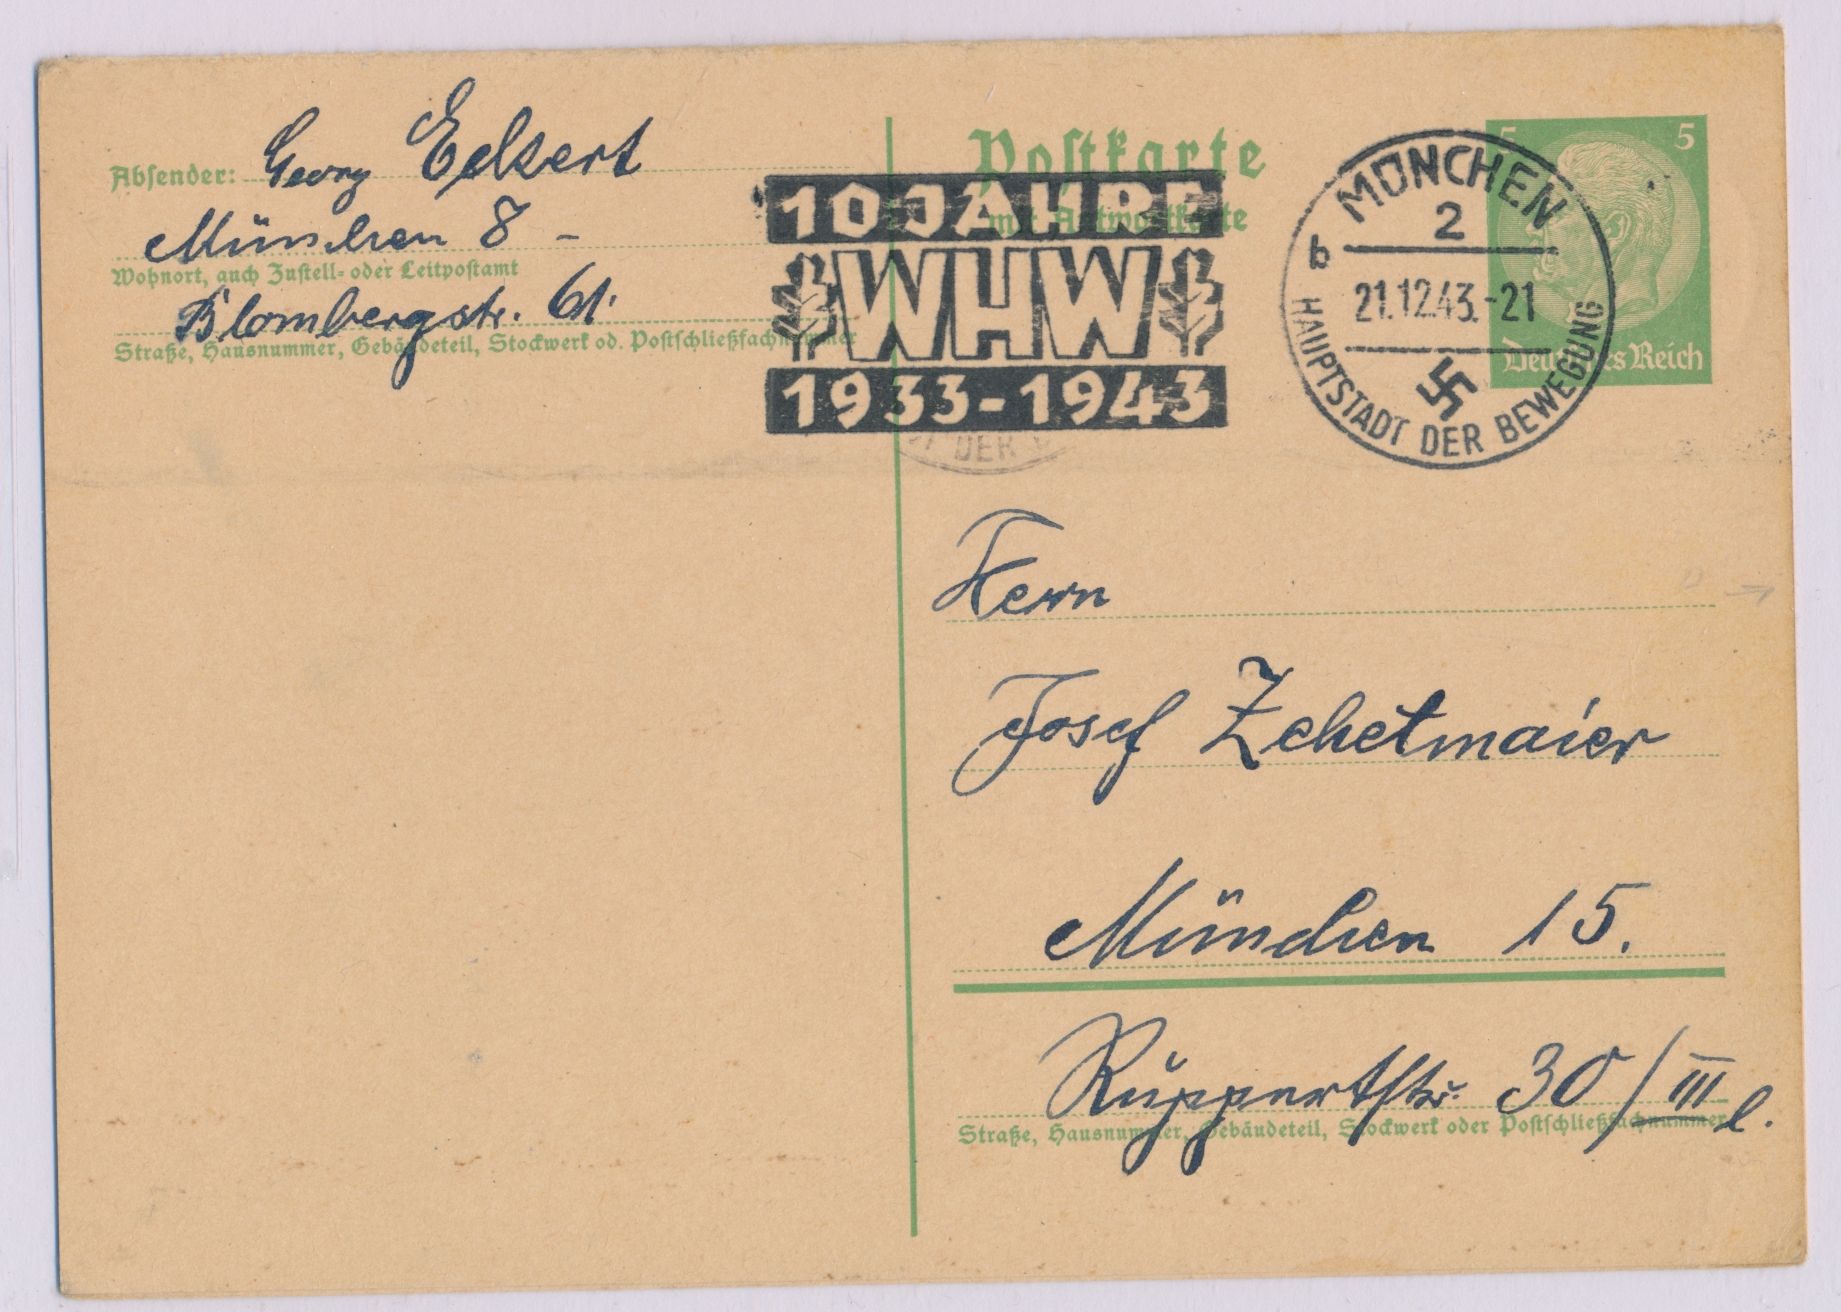 Absender: Georg Eckert
München 8 –
Wohnort, auch Zustell- oder Leitpostamt
Blombergstr. 61.
Straße, Hausnummer, Gebäudeteil, Stockwerk od. Postschließfachnummer
Postkarte
mit Antwortkarte
10 JAHRE
WHW
1933-1943
MÜNCHEN
2
b
21.12.43.-21
HAUPTSTADT DER BEWEGUNG
5 5
Deutsches Reich
DER
Herrn
Josef Zehetmaier
München 15.
Ruppertstr. 30/III l.
Straße, Hausnummer, Gebäudeteil, Stockwerk oder Postschließfachnummer